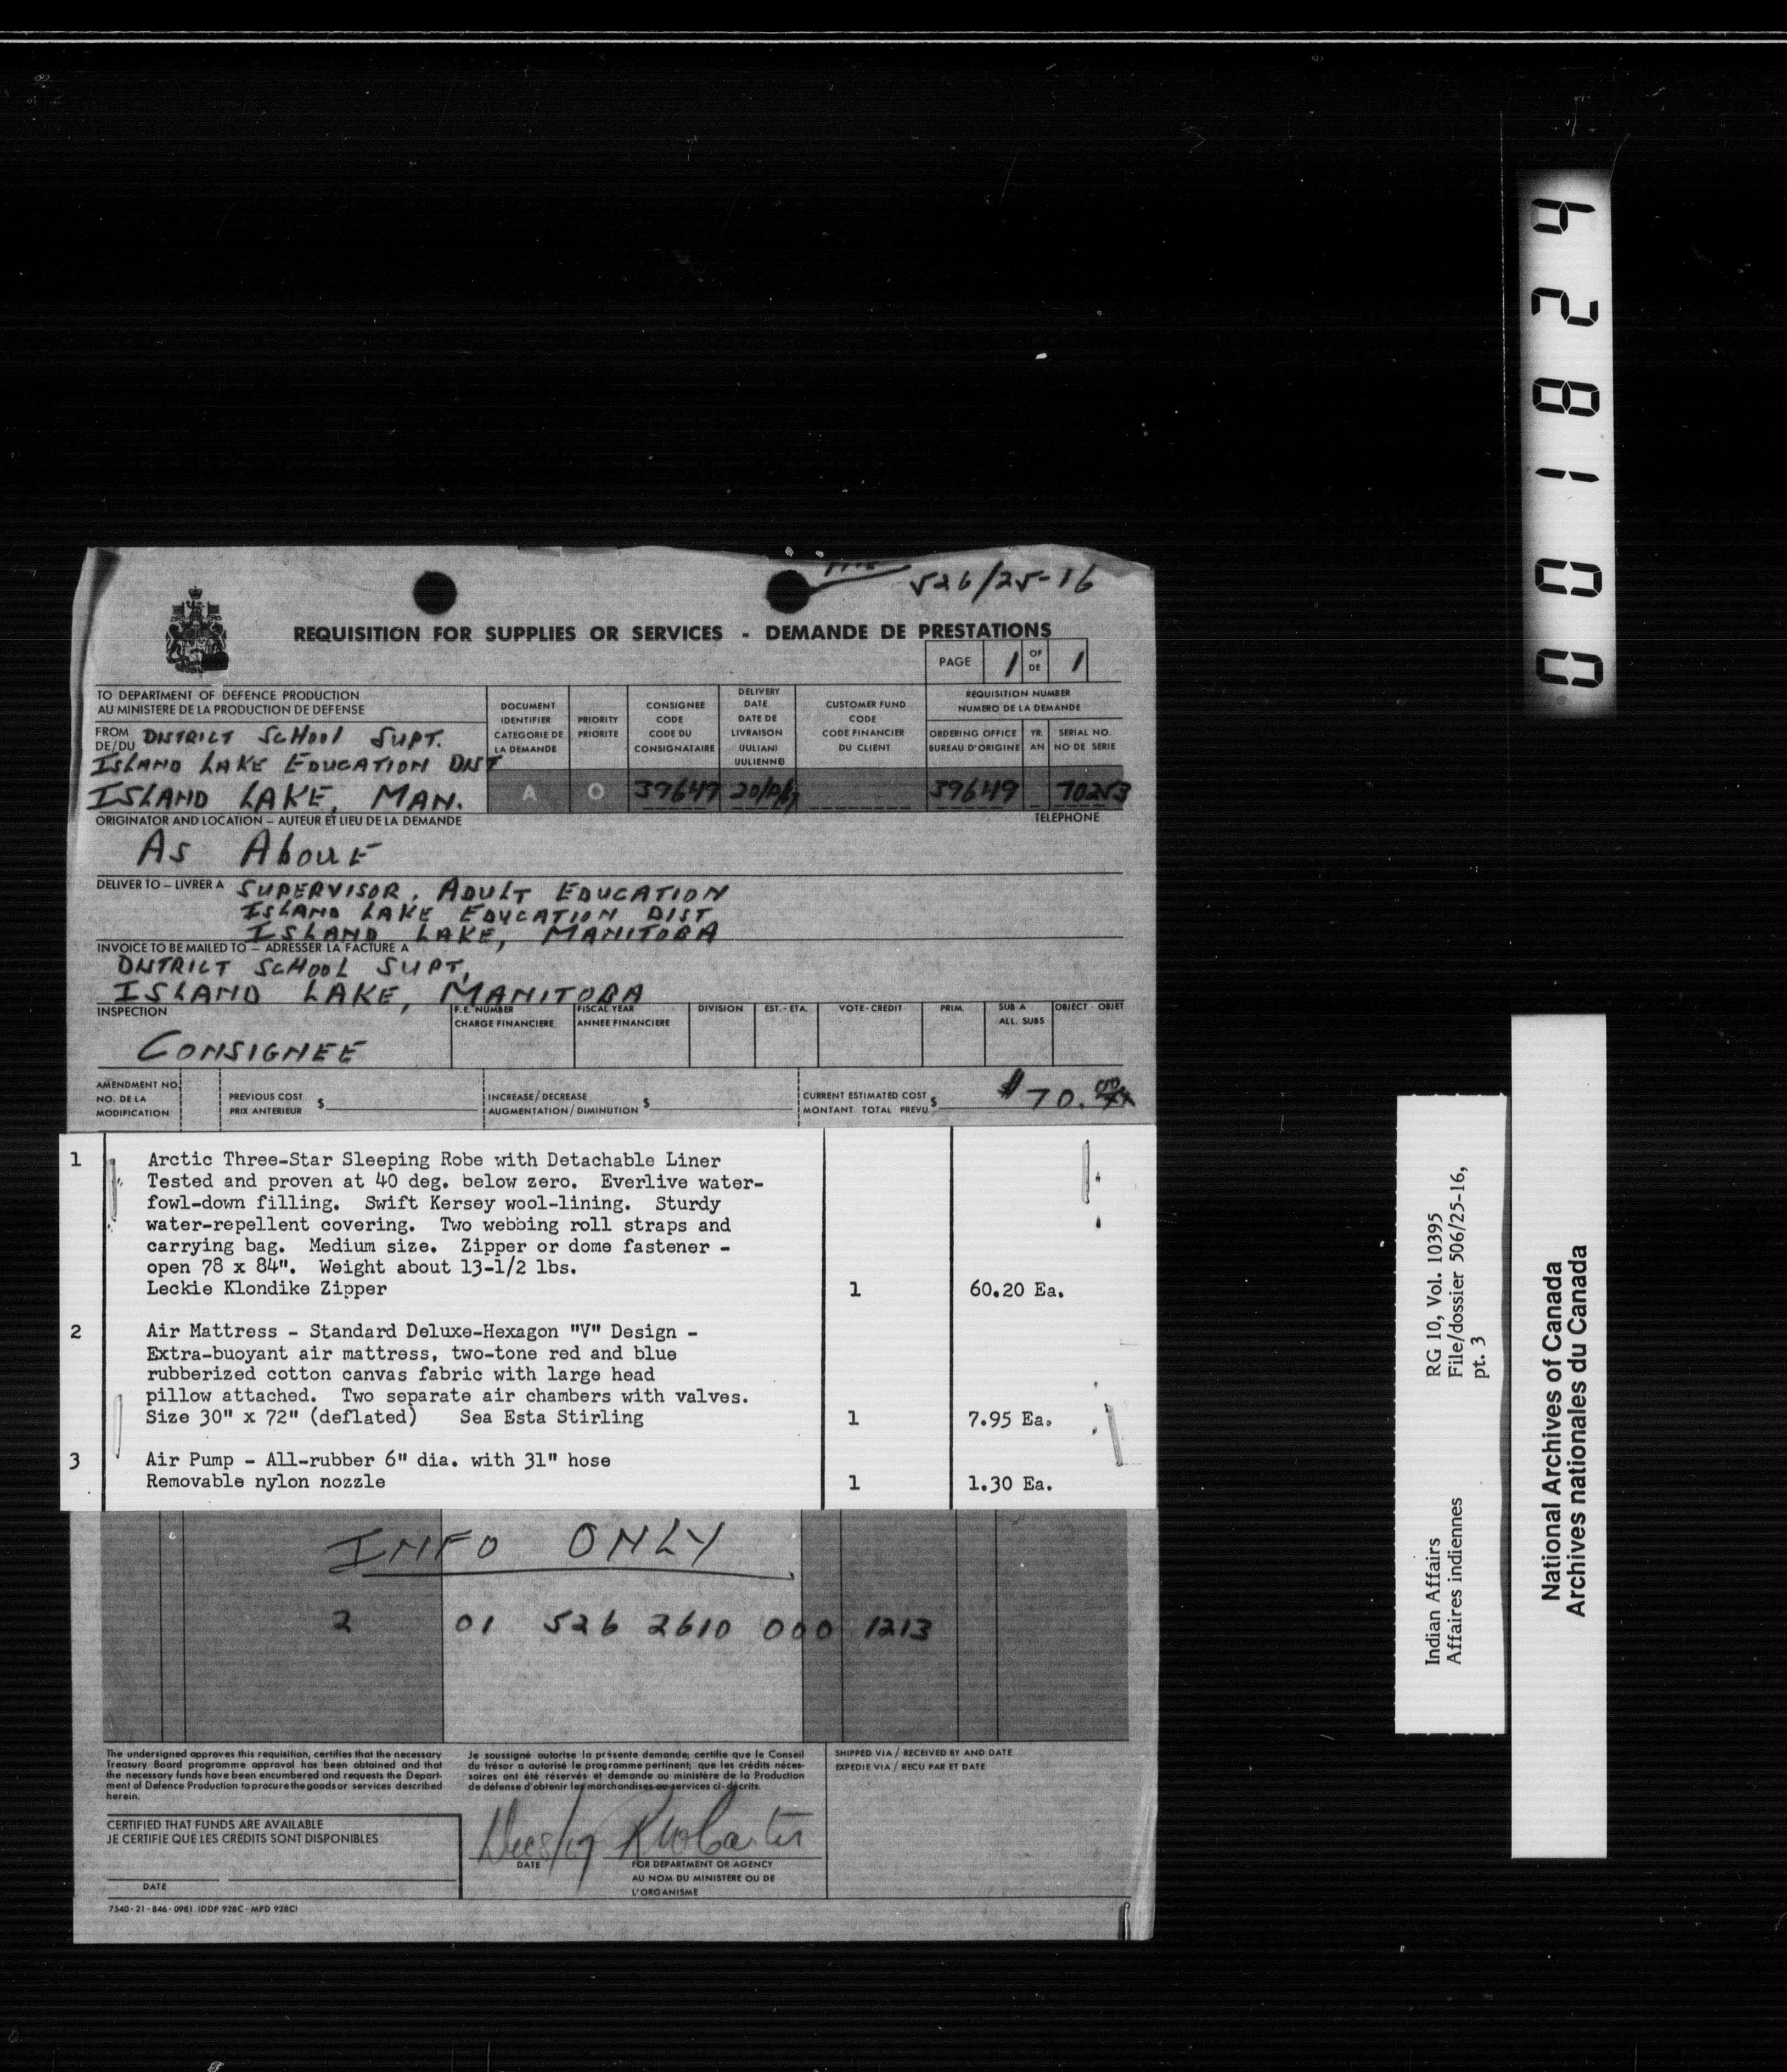 526/25-16
REQUISITION FOR SUPPLIES OR SERVICES - DEMANDE DE PRESTATIONS
PAGE 1 OF DE 1
TO DEPARTMENT OF DEFENCE PRODUCTION
AU MINISTERE DE LA PRODUCTION DE DEFENSE
FROM DE/DU DISTRICT SCHOOL SUPT.
ISLAND LAKE EDUCATION DIST
ISLAND LAKE, MAN.
DOCUMENT IDENTIFIER
CATEGORIE DE LA DEMANDE
A
PRIORITY
PRIORITE
O
CONSIGNEE CODE
CODE DU CONSIGNATAIRE
39649
DELIVERY DATE
DATE DE LIVRAISON
(JULIAN)
(JULIENNE)
CUSTOMER FUND CODE
CODE FINANCIER DU CLIENT
REQUISITION NUMBER
NUMERO DE LA DEMANDE
ORDERING OFFICE
BUREAU D'ORIGINE
39649
YR.
AN
SERIAL NO.
NO DE SERIE
70253
ORIGINATOR AND LOCATION – AUTEUR ET LIEU DE LA DEMANDE
TELEPHONE
AS ABOVE
DELIVER TO – LIVRER A SUPERVISOR, ADULT EDUCATION
ISLAND LAKE EDUCATION DIST
ISLAND LAKE, MANITOBA
INVOICE TO BE MAILED TO – ADRESSER LA FACTURE A
DISTRICT SCHOOL SUPT,
ISLAND LAKE, MANITOBA
INSPECTION
CONSIGNEE
F.E. NUMBER
CHARGE FINANCIERE
FISCAL YEAR
ANNEE FINANCIERE
DIVISION
EST. - ETA.
VOTE - CREDIT
PRIM.
SUB A
ALL. SUBS
OBJECT - OBJET
AMENDMENT NO.
NO. DE LA
MODIFICATION
PREVIOUS COST
PRIX ANTERIEUR $
INCREASE/DECREASE
AUGMENTATION/DIMINUTION $
CURRENT ESTIMATED COST
MONTANT TOTAL PREVU $
$70.00
1 Arctic Three-Star Sleeping Robe with Detachable Liner
Tested and proven at 40 deg. below zero. Everlive water-
fowl-down filling. Swift Kersey wool-lining. Sturdy
water-repellent covering. Two webbing roll straps and
carrying bag. Medium size. Zipper or dome fastener -
open 78 x 84". Weight about 13-1/2 lbs.
Leckie Klondike Zipper 1 60.20 Ea.
2 Air Mattress - Standard Deluxe-Hexagon "V" Design -
Extra-buoyant air mattress, two-tone red and blue
rubberized cotton canvas fabric with large head
pillow attached. Two separate air chambers with valves.
Size 30" x 72" (deflated) Sea Esta Stirling 1 7.95 Ea.
3 Air Pump - All-rubber 6" dia. with 31" hose
Removable nylon nozzle 1 1.30 Ea.
INFO ONLY
2 01 526 2610 000 1213
The undersigned approves this requisition, certifies that the necessary
Treasury Board programme approval has been obtained and that
the necessary funds have been encumbered and requests the Depart-
ment of Defence Production to procure the goods or services described
herein.
Je soussigné autorise la présente demande; certifie que le Conseil
du trésor a autorisé le programme pertinent; que les crédits néces-
saires ont été réservés et demande au ministère de la Production
de défense d'obtenir les marchandises ou services ci-décrits.
SHIPPED VIA / RECEIVED BY AND DATE
EXPEDIE VIA / RECU PAR ET DATE
CERTIFIED THAT FUNDS ARE AVAILABLE
JE CERTIFIE QUE LES CREDITS SONT DISPONIBLES
DATE
DATE
FOR DEPARTMENT OR AGENCY
AU NOM DU MINISTERE OU DE
L'ORGANISME
7540-21-846-0981 (DDP 928C - MPD 928C)
001824
Indian Affairs RG 10, Vol. 10395
Affaires indiennes File/dossier 506/25-16,
pt. 3
National Archives of Canada
Archives nationales du Canada